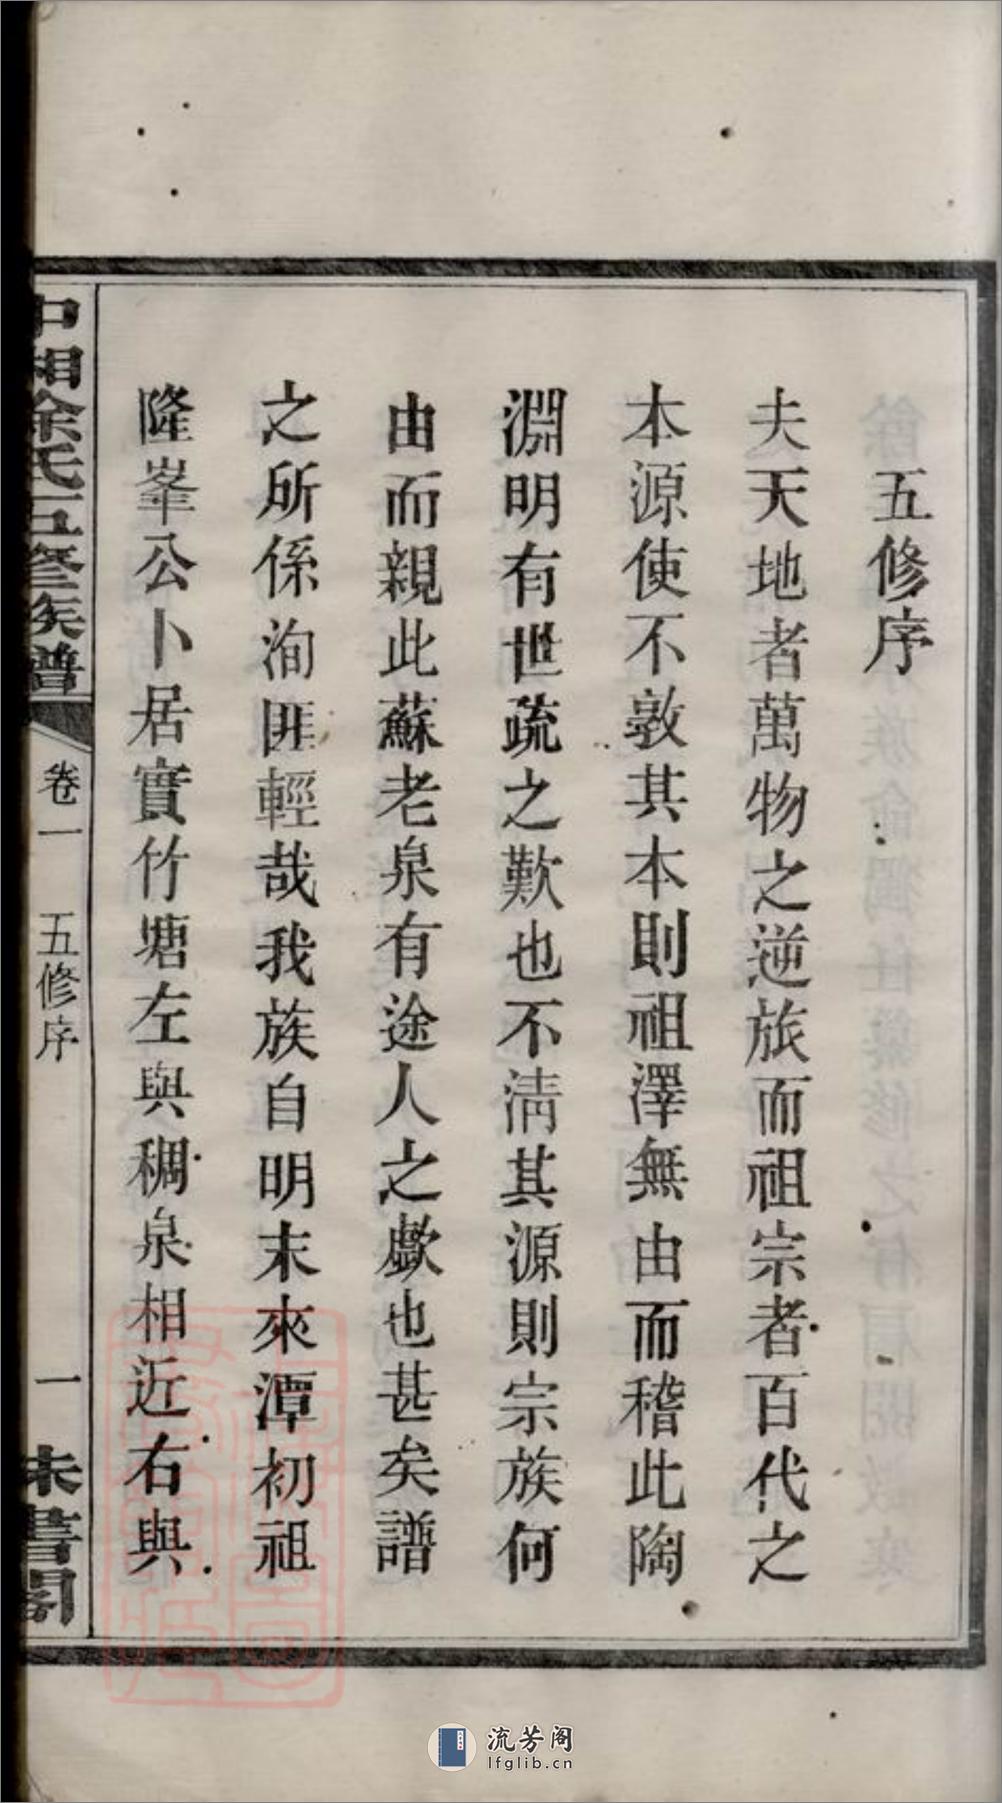 五修序
夫天地者萬物之逆旅而祖宗者百代之
本源使不敦其本則祖澤無由而稽此陶
淵明有世疏之歎也不清其源則宗族何
由而親此蘇老泉有途人之歔也甚矣譜
之所係洵匪輕哉我族自明末來潭初祖
隆峯公卜居實竹塘左與稠泉相近右與
中湘余氏五修族譜
卷一
五修序
一
末書閣
流芳阁
lfglib.cn